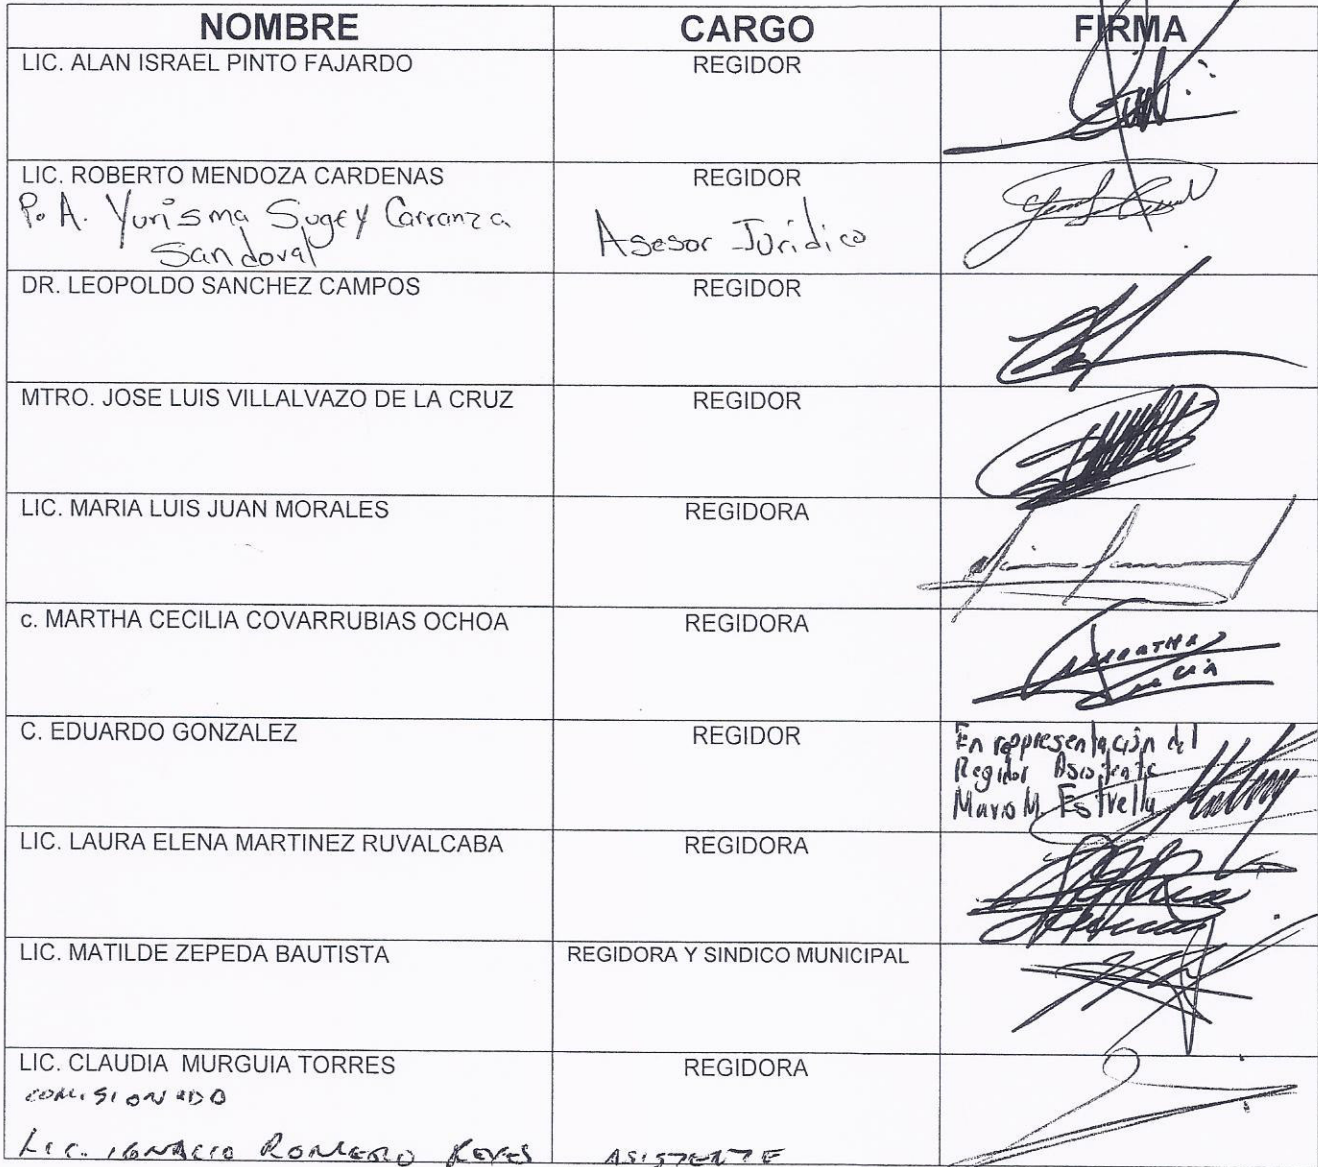 NOMBRE CARGO FIRMA
LIC. ALAN ISRAEL PINTO FAJARDO REGIDOR
LIC. ROBERTO MENDOZA CARDENAS REGIDOR
P. A. Yurisma Sugey Carranza Asesor Jurídico
Sandoval
DR. LEOPOLDO SANCHEZ CAMPOS REGIDOR
MTRO. JOSE LUIS VILLALVAZO DE LA CRUZ REGIDOR
LIC. MARIA LUIS JUAN MORALES REGIDORA
c. MARTHA CECILIA COVARRUBIAS OCHOA REGIDORA
C. EDUARDO GONZALEZ REGIDOR
En reppresentación del
Regidor Asistente
Mario M. Estrella
LIC. LAURA ELENA MARTINEZ RUVALCABA REGIDORA
LIC. MATILDE ZEPEDA BAUTISTA REGIDORA Y SINDICO MUNICIPAL
LIC. CLAUDIA MURGUIA TORRES REGIDORA
COMISIONADO
LIC. IGNACIO ROMERO REYES ASISTENTE